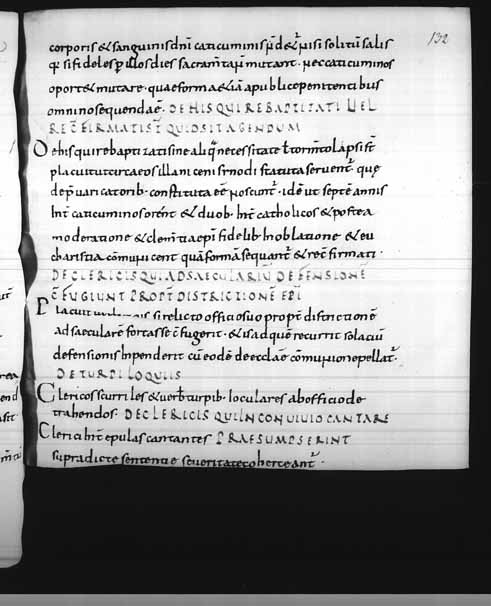 132
corporis & sanguinis dñi caticuminis ñ d&ur nisi solitũ salis
q̃ si fideles p illos dies sacram̃ta ñ mutant. nec caticuminos
oport& mutare. quae forma &iã apud publice penitentibus
omnino sequenda ẽ. DE HIS QUI REBAPTIZATI UEL
De his qui rebaptizati sine aliq̃ necessitate t torm̃to lapsi s̃t
placuit ut circa eos illa niceni sinodi statuta seruent̃. que
de p̃uaricatorib. constituta eẽ noscunt̃. idẽ ut septẽ annis
int̃ caticuminos orent & duob. int̃ catholicos & postea
moderatione & clem̃tia epi fidelib. In oblatione & eu
charistia cõmunicent quã formã sequant̃
DE CLERICIS QUI AD SAECULARIŨ DEFENSIONẼ
CÕFUGIUNT PROPT̃ DISTRICTIONẼ EPI
Placuit si relicto officio suo propt̃ districtionẽ
ad saecularẽ fortasse cõfugerit. & is ad quẽ recurrit solaciũ
defensionis Inpenderit cũ eodẽ de ecclae cõmunione pellat̃.
DE TURPILOQUIIS
Clericos scurriles & uerb. turpib. Ioculares ab officio de
trahendos. DE CLERICIS QUI IN CONUIUIO CANTARE
Clerici int̃ epulas cantantes PRAESUMPSERINT
supradicte sententie seueritate coherceant̃.